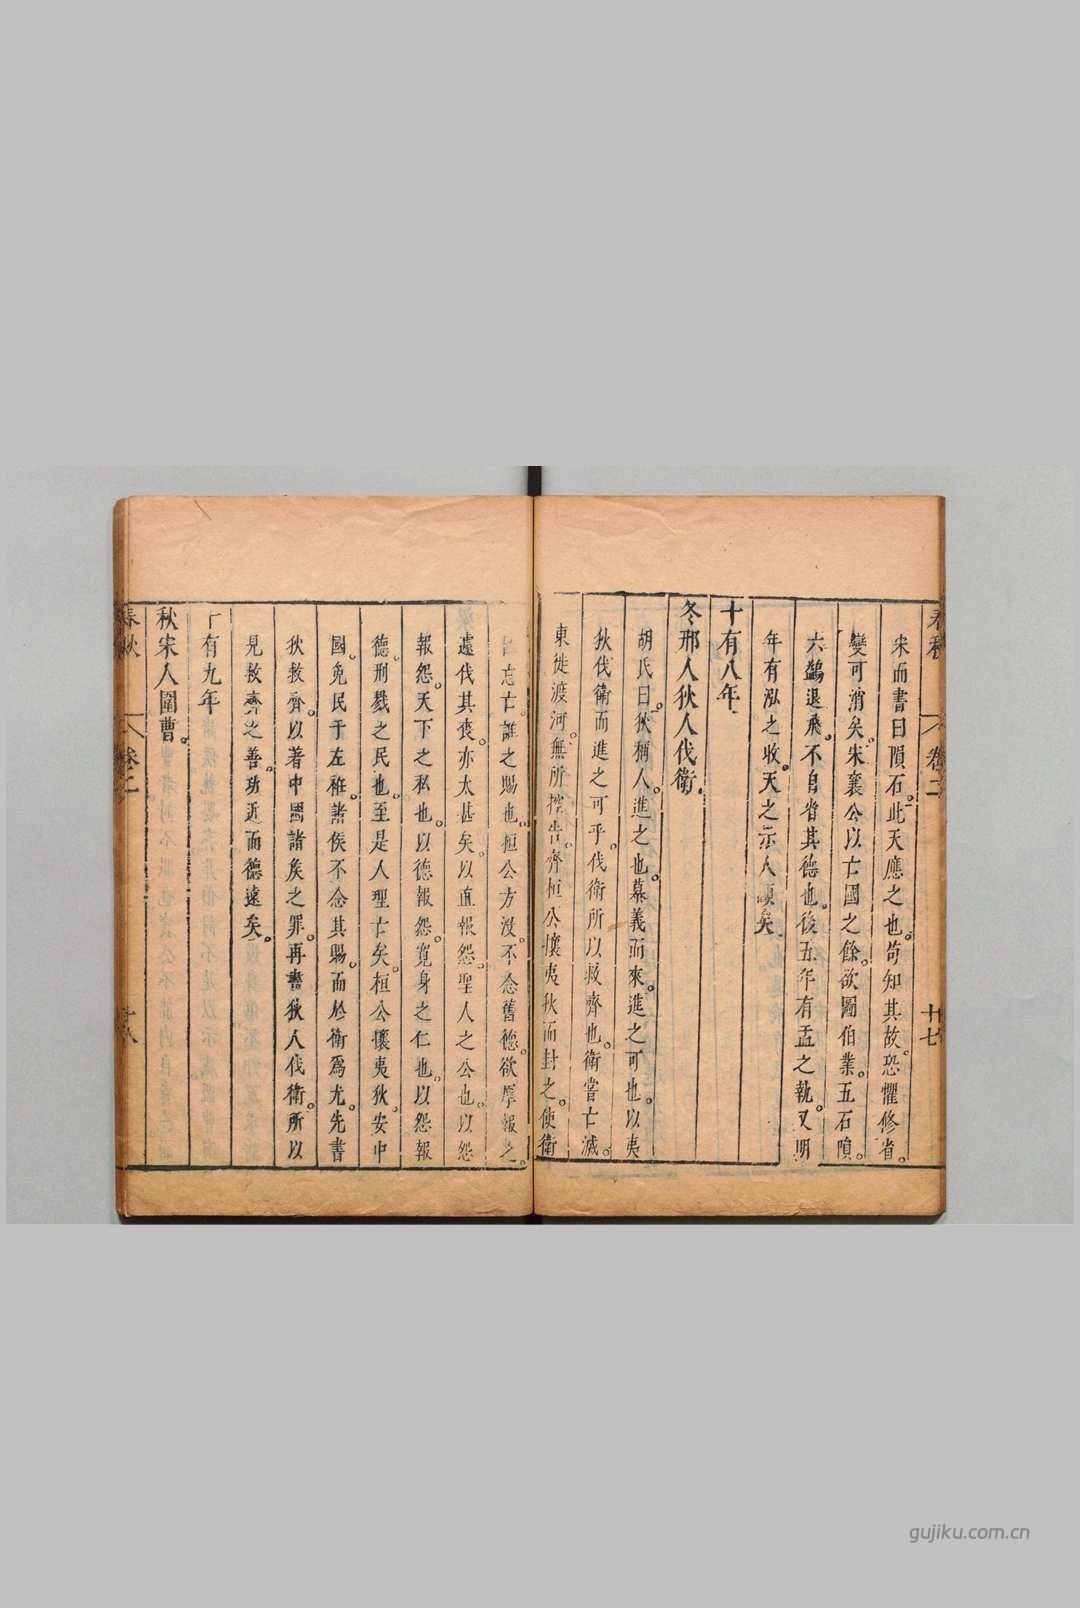 春秋 卷二 十七
宋而書曰隕石。此天應之也。苟知其故。恐懼修省。
變可消矣。宋襄公以亡國之餘。欲圖伯業。五石隕。
六鷁退飛。不自省其德也。後五年有盂之執。又明
年有泓之敗。天之示人顯矣。
十有八年。
冬邢人狄人伐衛。
胡氏曰。狄稱人。進之也。慕義而來。進之可也。以夷
狄伐衛而進之可乎。伐衛所以救齊也。衛嘗亡滅。
東徙渡河。無所控告。齊桓公攘夷狄而封之。使衛
國忘亡。誰之賜也。桓公方沒。不念舊德。欲厚報之。
遽伐其喪。亦太甚矣。以直報怨。聖人之公也。以怨
報怨。天下之私也。以德報怨。寬身之仁也。以怨報
德。刑戮之民也。至是人理亡矣。桓公攘夷狄。安中
國。免民于左衽。諸侯不念其賜。而於衛爲尤。先書
狄救齊。以著中國諸侯之罪。再書狄人伐衛。所以
見救齊之善。功近而德遠矣。
十有九年
秋宋人圍曹。
春秋 卷二 十八
gujiku.com.cn